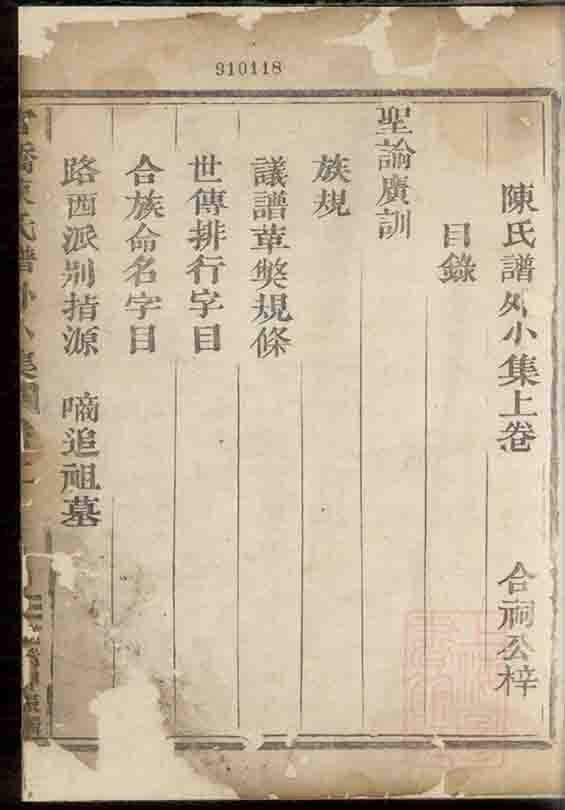 910118
陳氏譜外小集上卷　合祠公梓
目錄
聖諭廣訓
族規
議譜革獘規條
世傳排行字目
合族命名字目
路西派别指源　嘀追祖墓
陳氏譜外小集